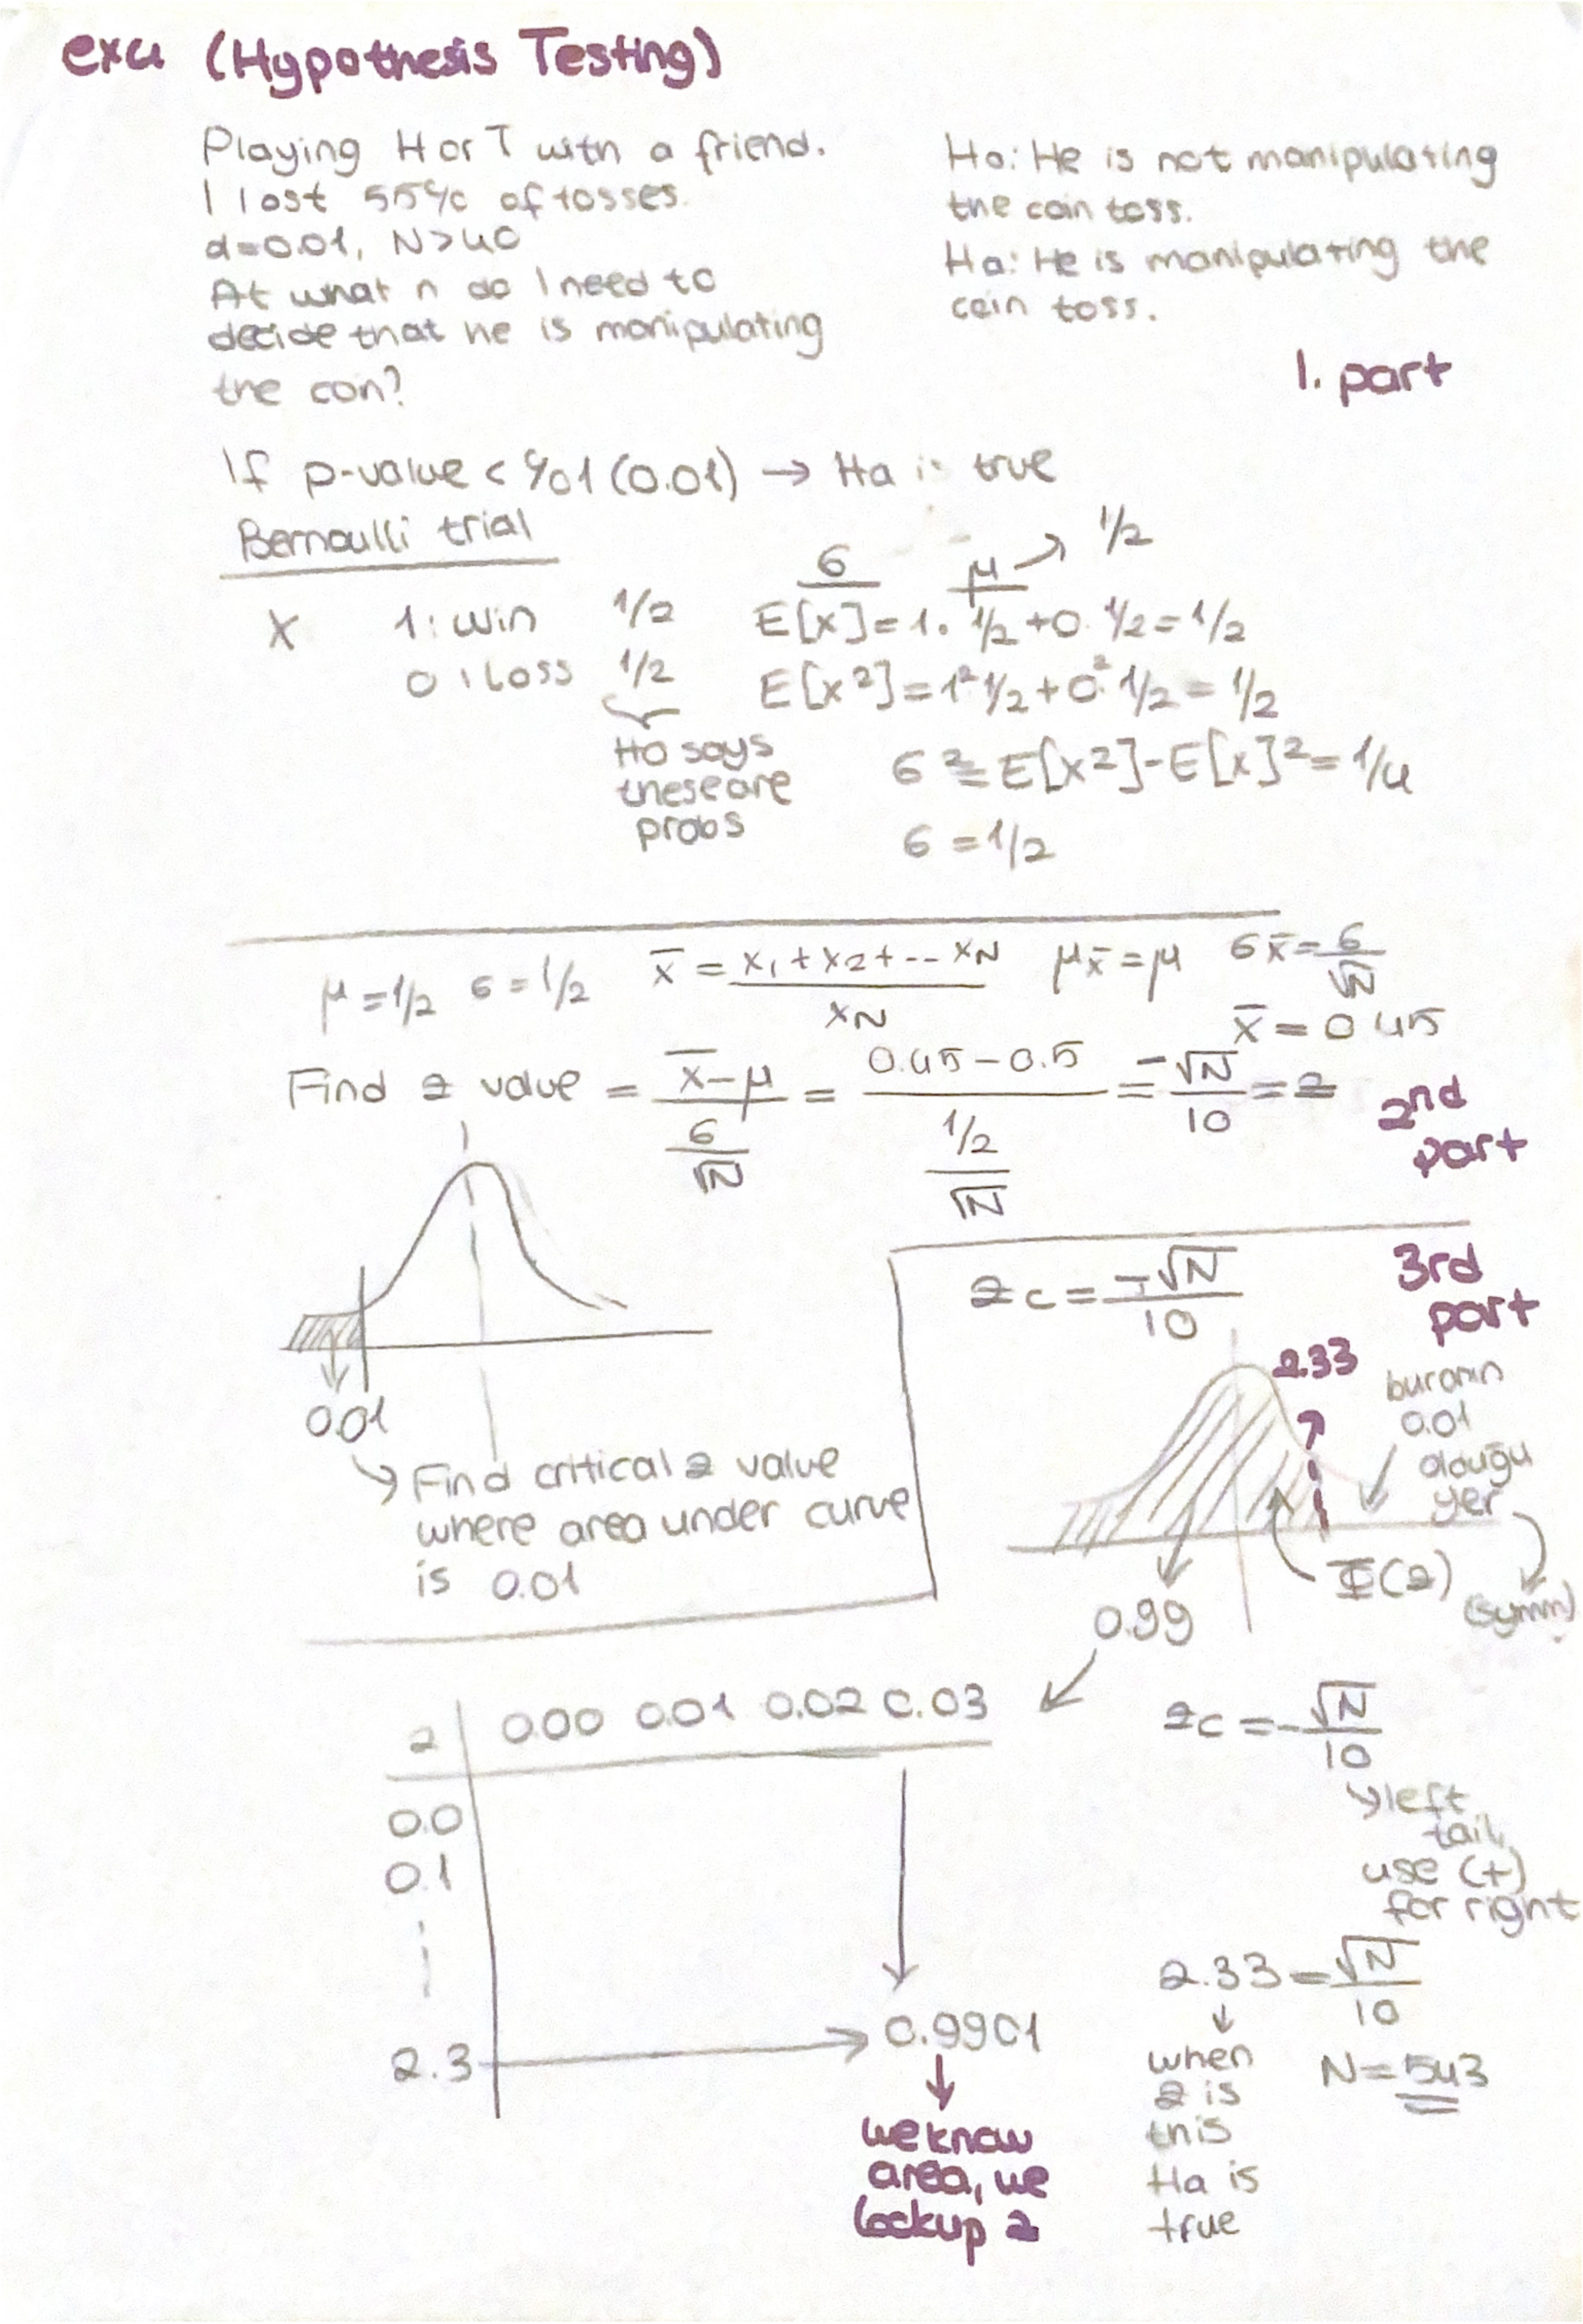 ex4 (Hypothesis Testing)
Playing H or T with a friend.
I lost 55% of tosses.
α=0.01, N>40
At what n do I need to
decide that he is manipulating
the con?
Ho: He is not manipulating
the coin toss.
Ha: He is manipulating the
coin toss.
1. part
If p-value < %1 (0.01) → Ha is true
Bernoulli trial
σ μ → 1/2
X 1: win 1/2 E[x]=1. 1/2+0. 1/2=1/2
0: Loss 1/2 E[x²]=1² 1/2+0². 1/2=1/2
HO says
these are
probs
σ²=E[x²]-E[x]²=1/4
σ=1/2
μ=1/2 σ=1/2 x̄ = (x₁+x₂+...xN)/xN μx̄=μ σx̄=σ/√N
x̄=0.45
Find z value = (x̄-μ)/(σ/√N) = (0.45-0.5)/((1/2)/√N) = -√N/10 = z
2nd
part
0.01
Find critical z value
where area under curve
is 0.01
zc = -√N/10
3rd
part
2.33
buranın
0.01
olduğu
yer
Φ(z)
(symm)
0.99
z 0.00 0.01 0.02 0.03
0.0
0.1
2.3 → 0.9901
we know
area, we
lookup z
zc = -√N/10
left
tail,
use (+)
for right
2.33 = √N/10
when
z is
this
Ha is
true
N=543